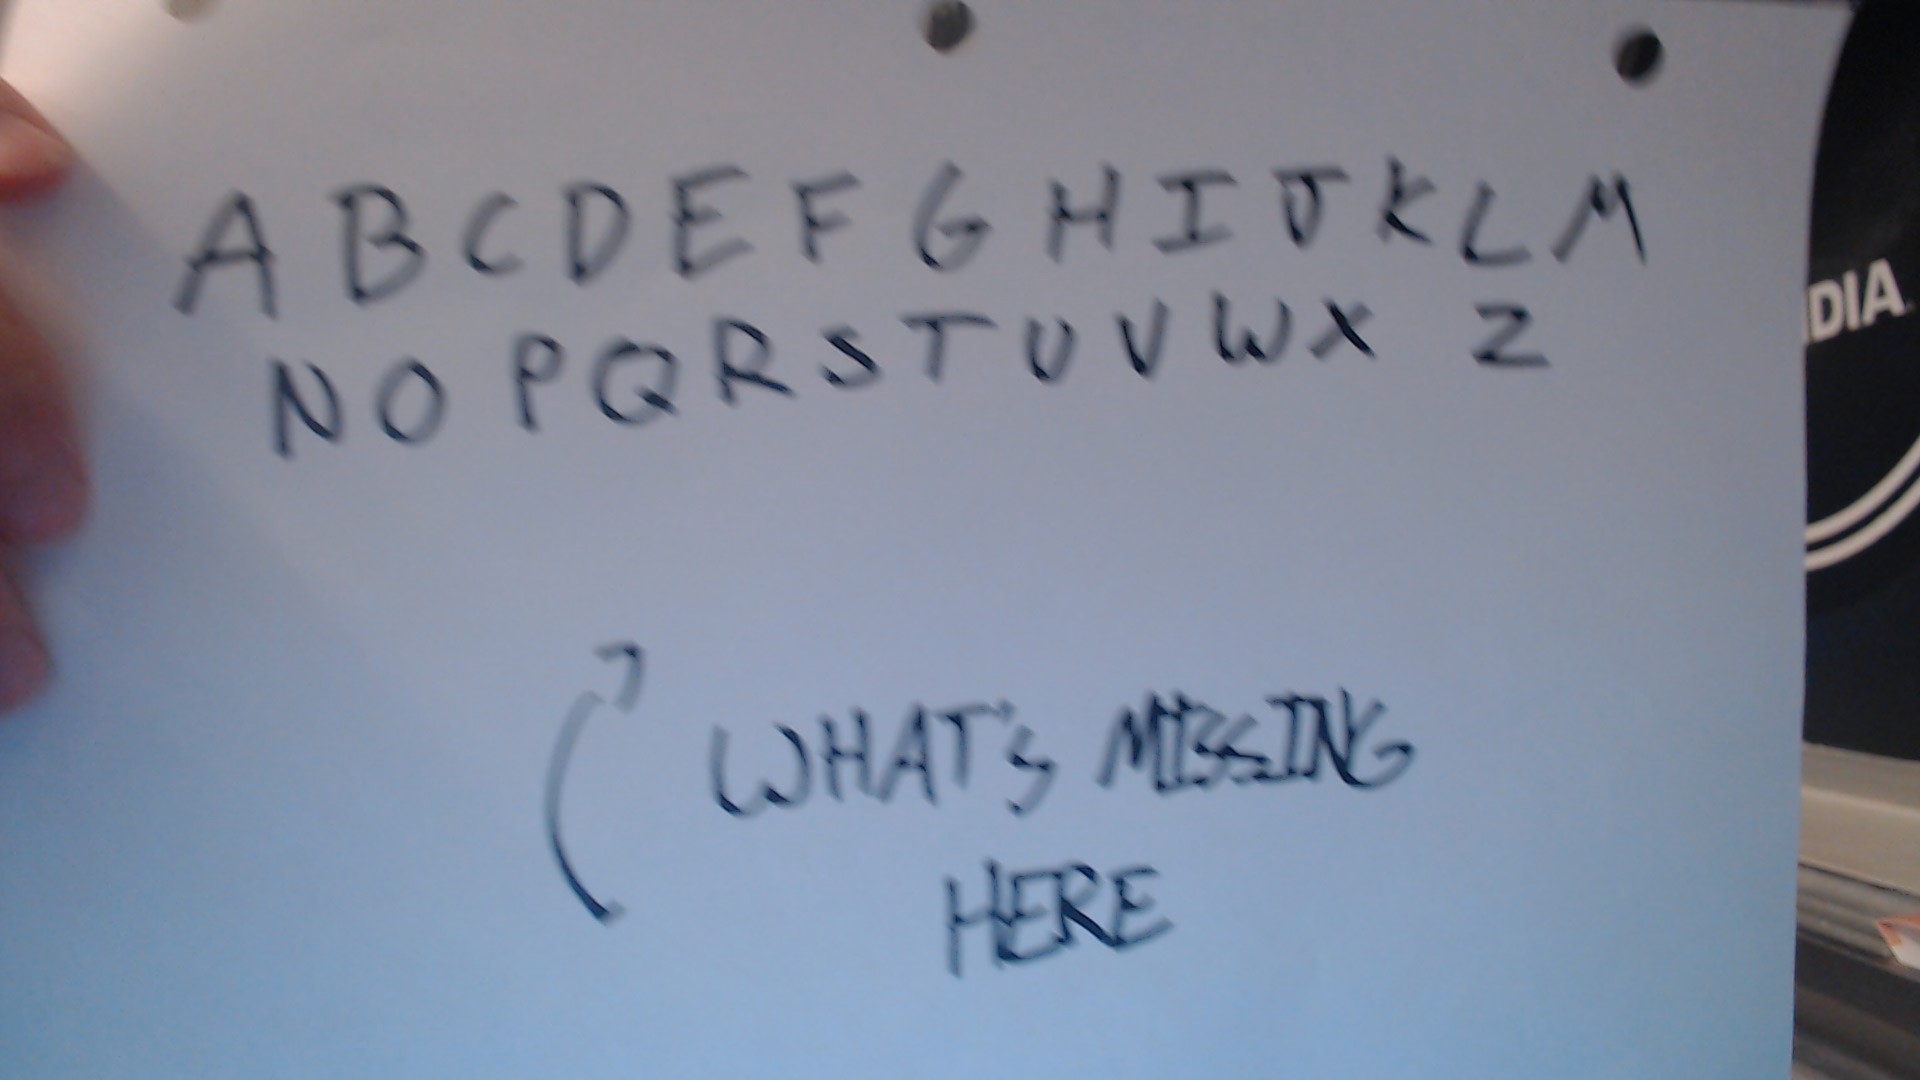 A B C D E F G H I J K L M
N O P Q R S T U V W X Z
WHAT'S MISSING
HERE
DIA